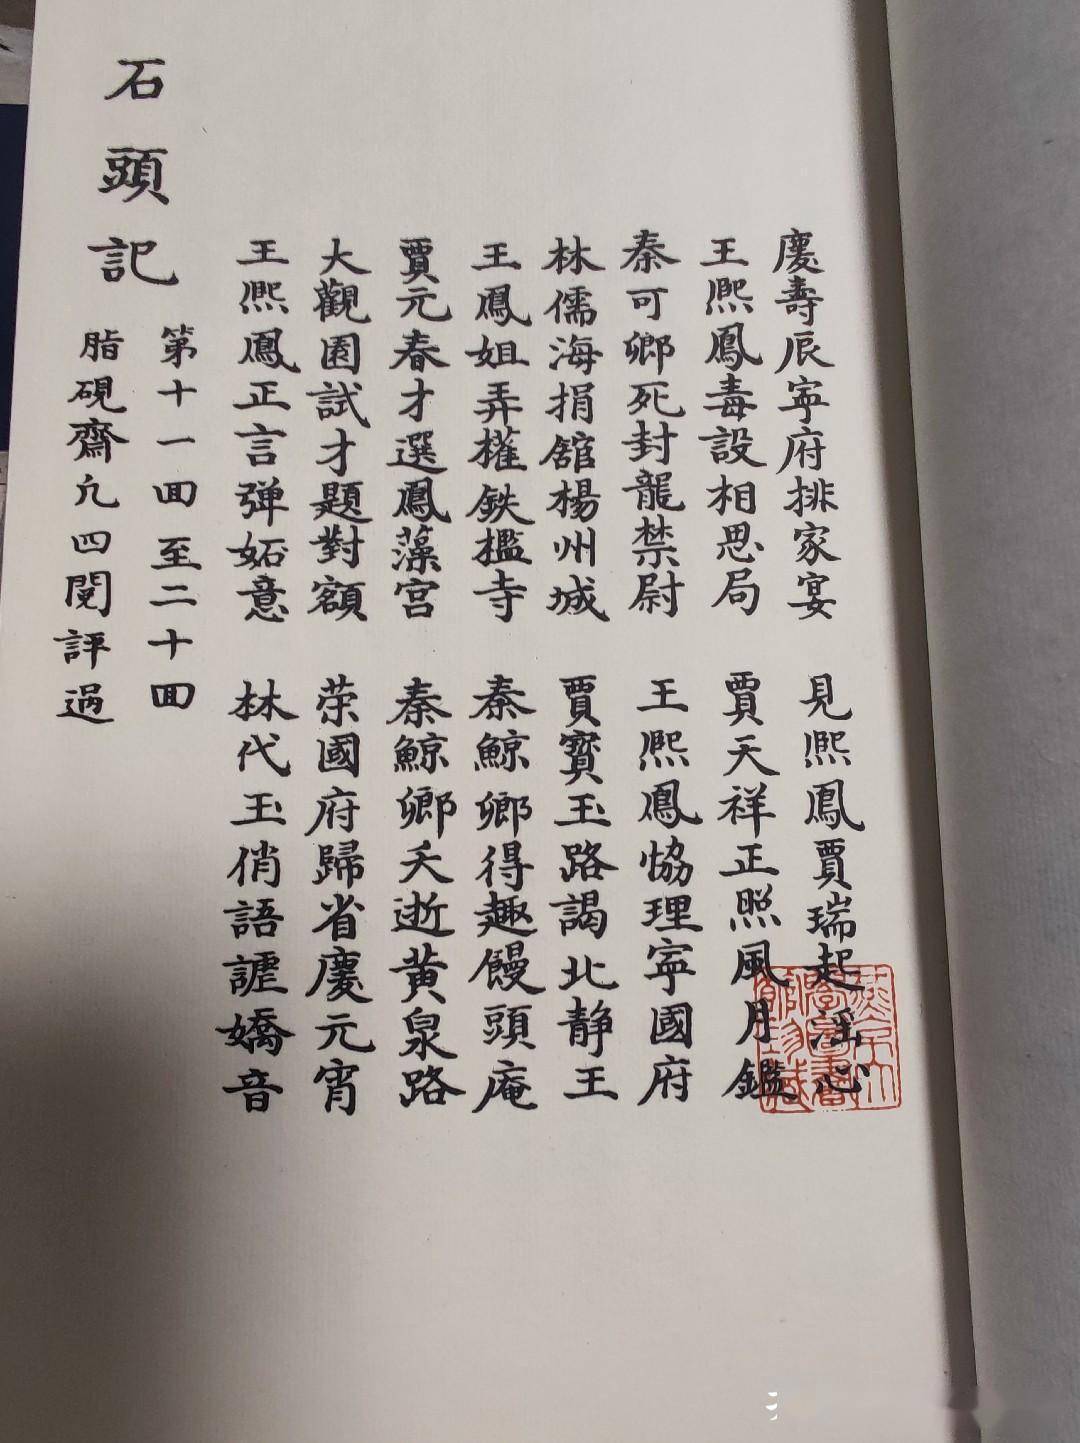 慶壽辰寕府排家宴　見熈鳳賈瑞起淫心
王熈鳳毒設相思局　賈天祥正照風月鑑
秦可卿死封龍禁尉　王熈鳳恊理寕國府
林儒海捐舘楊州城　賈寳玉路謁北静王
王鳳姐弄權鉄檻寺　秦鯨卿得趣饅頭庵
賈元春才選鳳藻宮　秦鯨卿夭逝黄泉路
大觀園試才題對額　荣國府歸省慶元宵
王熈鳳正言弹妬意　林代玉俏語謔嬌音
第十一囬至二十囬
石頭記
脂硯齋凢四閱評過
燕京大
學圖書
館珍藏